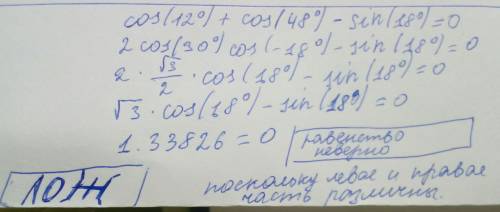 cos(12°) + cos(48°) - sin(18°) = 0
2 cos(30°) cos(-18°) - sin(18°) = 0
2 · √3/2 · cos(18°) - sin(18°) = 0
√3 · cos(18°) - sin(18°) = 0
1.33826 = 0
равенство
неверно
ЛОЖ
поскольку левая и правая
часть различны.